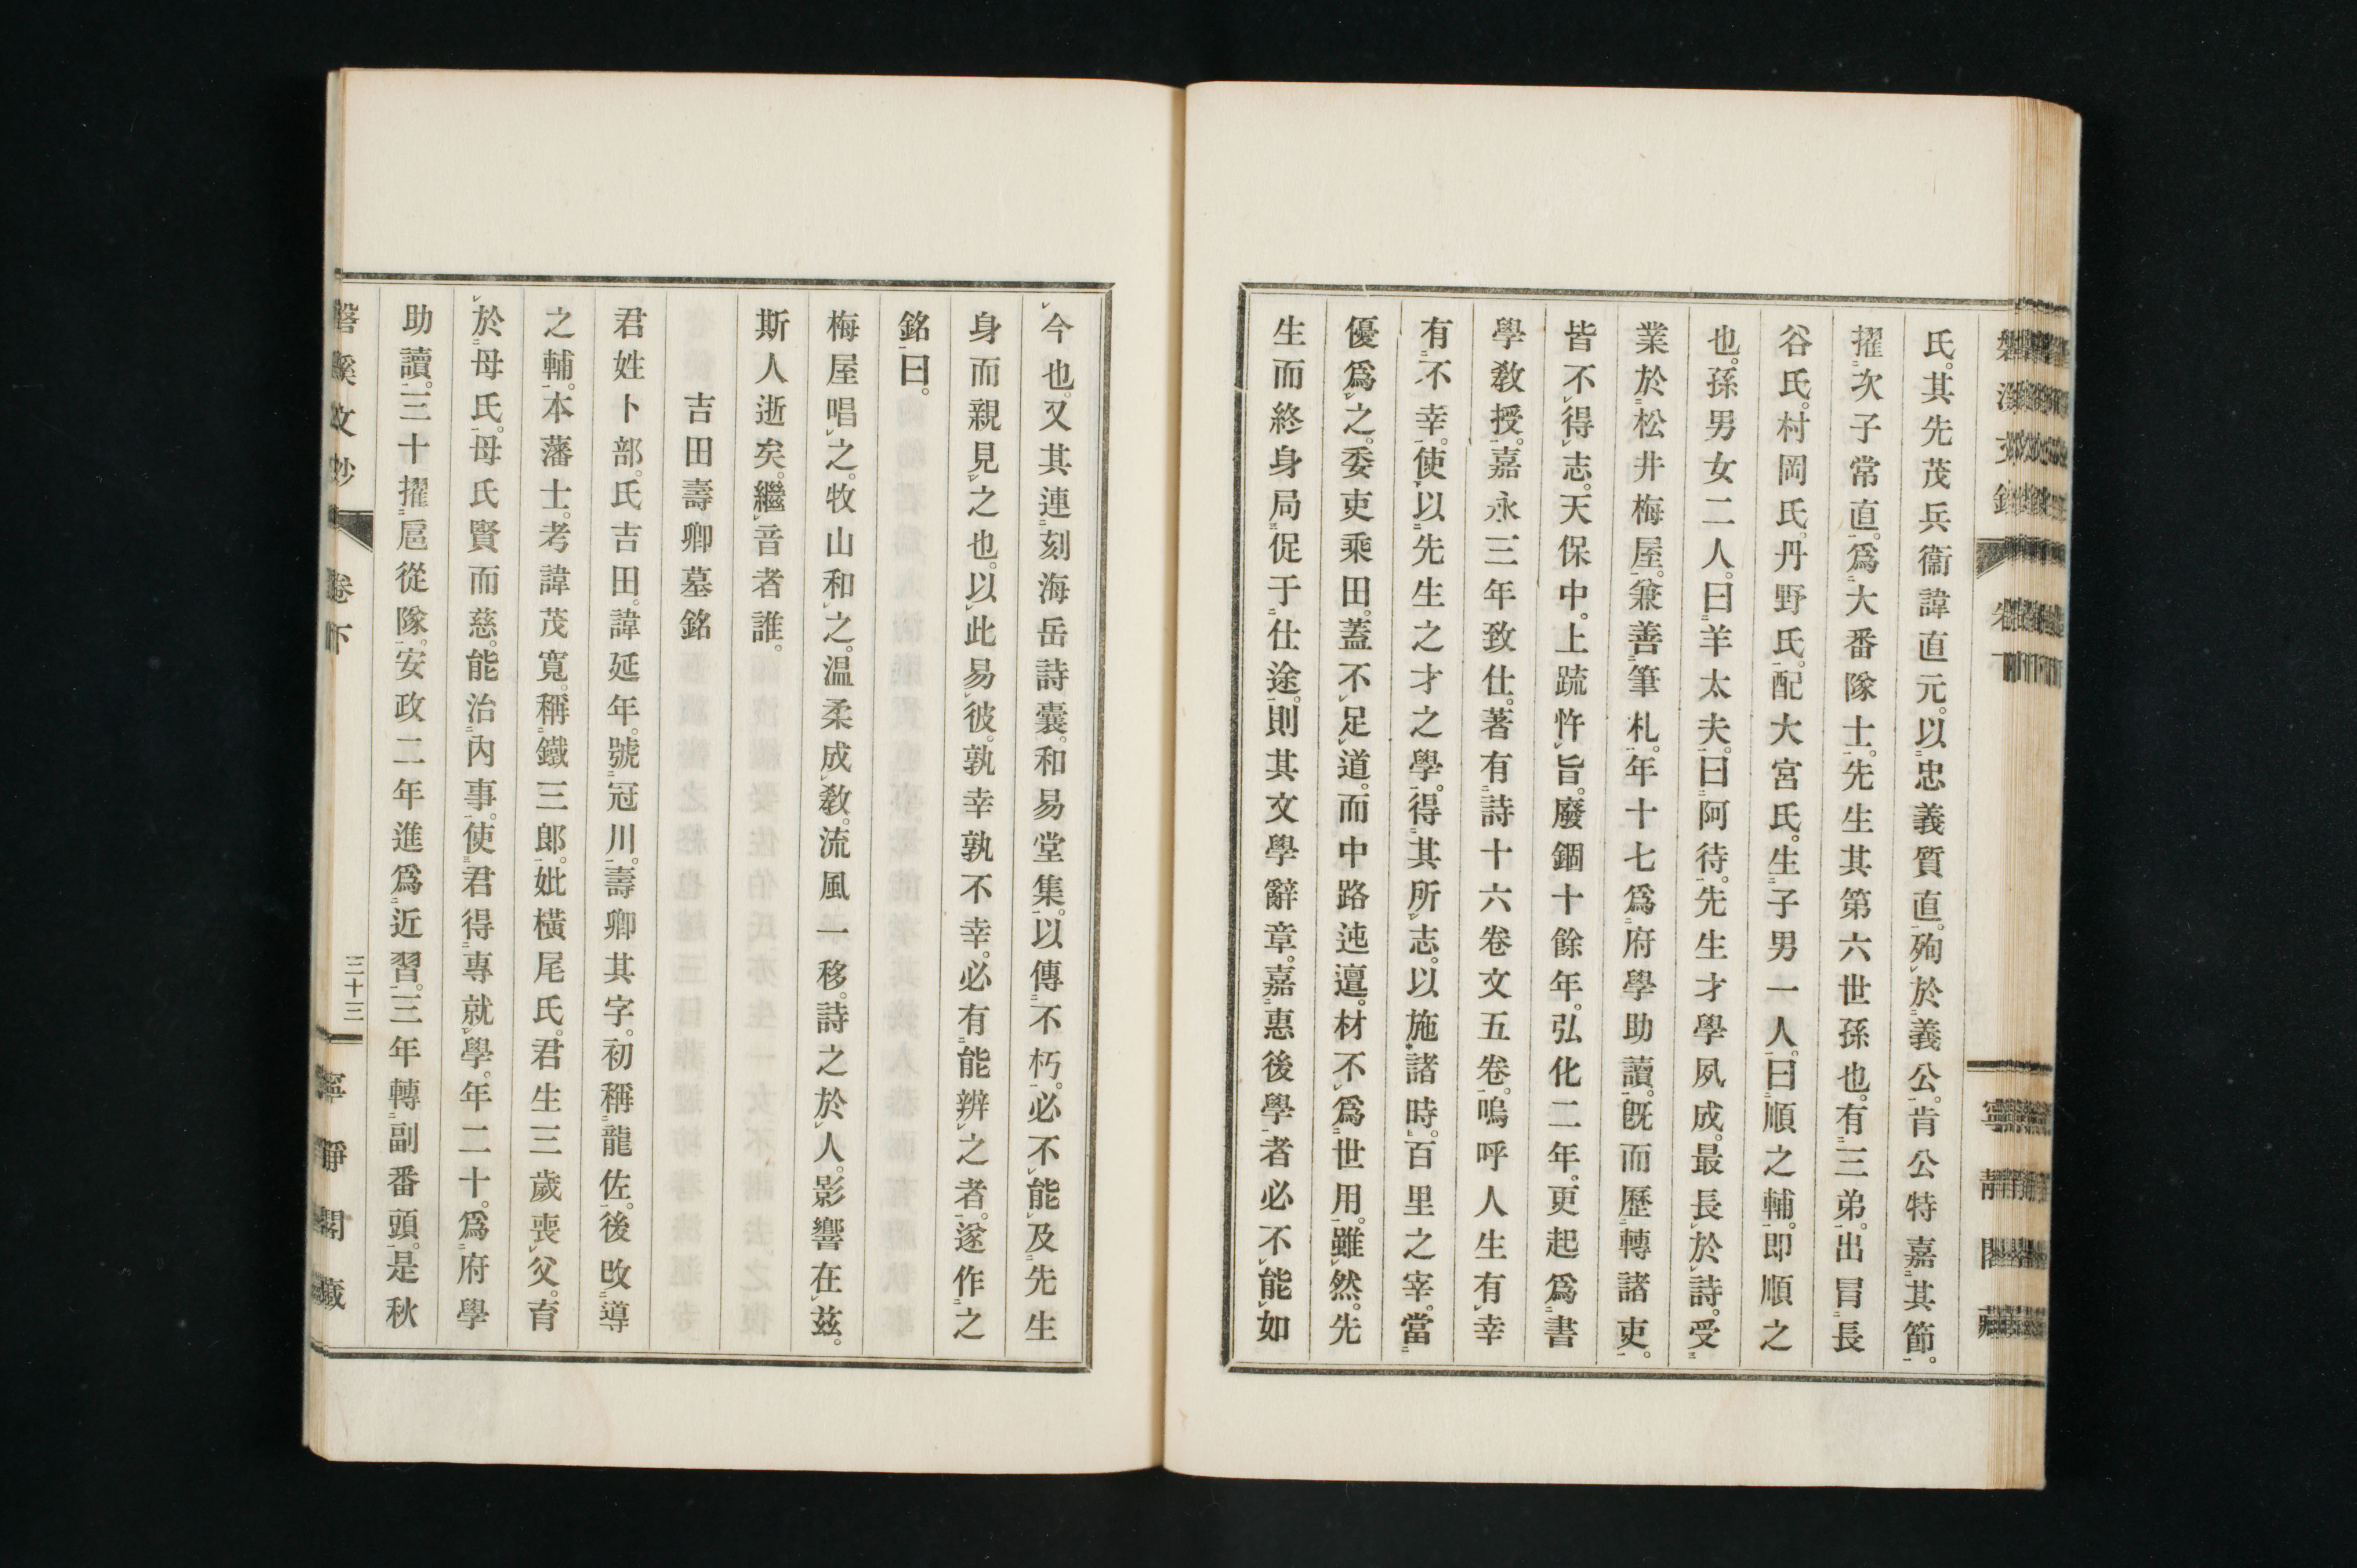 氏。其先茂兵衞諱直元。以忠義質直。殉於義公。肯公特嘉其節。
擢次子常直。爲大番隊士。先生其第六世孫也。有三弟。出冒長
谷氏。村岡氏。丹野氏。配大宮氏。生子男一人。曰順之輔。即順之
也。孫男女二人。曰羊太夫。曰阿待。先生才學夙成。最長於詩。受
業於松井梅屋。兼善筆札。年十七爲府學助讀。旣而歷轉諸吏。
皆不得志。天保中。上䟽忤旨。廢錮十餘年。弘化二年。更起爲書
學敎授。嘉永三年致仕。著有詩十六卷文五卷。嗚呼人生有幸
有不幸。使以先生之才之學。得其所志。以施諸時。百里之宰。當
優爲之。委吏乘田。蓋不足道。而中路迍邅。材不爲世用。雖然。先
生而終身局促于仕途。則其文學辭章。嘉惠後學者必不能如
今也。又其連刻海岳詩囊。和易堂集。以傳不朽。必不能及先生
身而親見之也。以此易彼。孰幸孰不幸。必有能辨之者。遂作之
銘曰。
梅屋唱之。牧山和之。温柔成敎。流風一移。詩之於人。影響在茲。
斯人逝矣。繼音者誰。
吉田壽卿墓銘
君姓卜部。氏吉田。諱延年。號冠川。壽卿其字。初稱龍佐。後改導
之輔。本藩士。考諱茂寬。稱鐵三郎。妣橫尾氏。君生三歲喪父。育
於母氏。母氏賢而慈。能治內事。使君得專就學。年二十。爲府學
助讀。三十擢扈從隊。安政二年進爲近習。三年轉副番頭。是秋
磐溪文鈔 卷下 三十三 寧靜閣藏